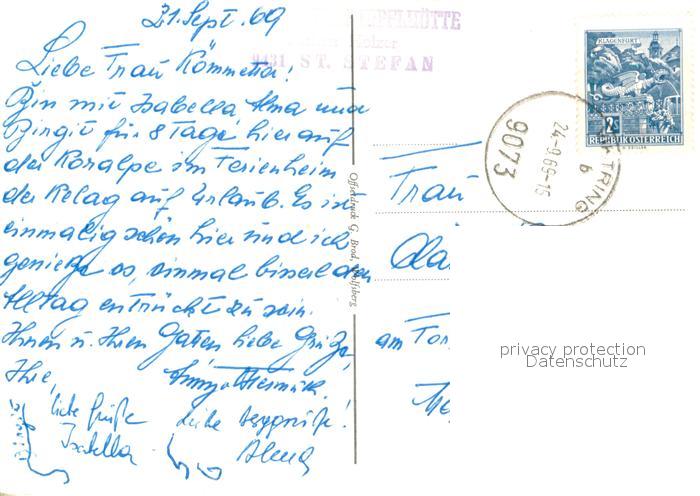 21. Sept. 69
Liebe Frau
Bin mit Isabella Alma und
Birgit für 8 Tage hier auf
der Koralpe im Ferienheim
der Kelag auf Urlaub. Es ist
einmalig schön hier und ich
genieße es, einmal bisserl dem
Alltag entrückt zu sein.
Ihnen u. Ihrem Gatten liebe Grüße
Ihre,
liebe Grüße
Isabella
Liebe Berggrüße!
Alma
Birgit
9431 ST. STEFAN
Offsetdruck G. Brod, Wolfsberg
KLAGENFURT
2S
REPUBLIK ÖSTERREICH
24.-9.69-15
b
9073
Frau
am
privacy protection
Datenschutz